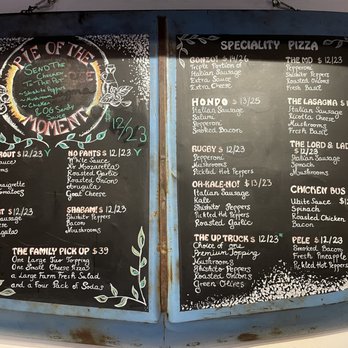 PIE OF THE
MOMENT
SEND THE
Chicken
Shishito Peppers
Mushrooms
Chicken
$12/23
ROUT $12/23 V
NO PANTS $12/23 V
White Sauce
Mr Mozzarella's
Roasted Garlic
Roasted Onions
Arugula
Goat Cheese
SHAGAME $12/23
Shishito Peppers
Bacon
Mushrooms
THE FAMILY PICK UP $39
One Large Two Topping
One Small Cheese Pizza
a Large Farm Fresh Salad
and a Four Pack of Sodas
SPECIALITY PIZZA
GONZO! $14/26
Triple Portion of
Italian Sausage
Extra Sauce
Extra Cheese
HONDO $13/25
Italian Sausage
Salami
Pepperoni
Smoked Bacon
RUGBY $12/23
Pepperoni
Mushrooms
Pickled Hot Peppers
OH-KALE-NO! $13/23
Italian Sausage
Kale
Shishito Peppers
Pickled Hot Peppers
Roasted Garlic
THE UD TRUCK $12/23
Choice of one
Premium Topping
Mushrooms
Shishito Peppers
Roasted Onions
Green Olives
THE MD $12/23
Pepperoni
Shishito Peppers
Roasted Garlic
Fresh Basil
THE LASAGNA $1
Italian Sausage
Ricotta Cheese
Mushrooms
Fresh Basil
THE LORD and LA
$12/23
Italian Sausage
Spinach
Mushrooms
CHICKEN BUS
White Sauce
Spinach
Roasted Chicken
Bacon
PELE $12/23
Smoked Bacon
Fresh Pineapple
Pickled Hot Peppers